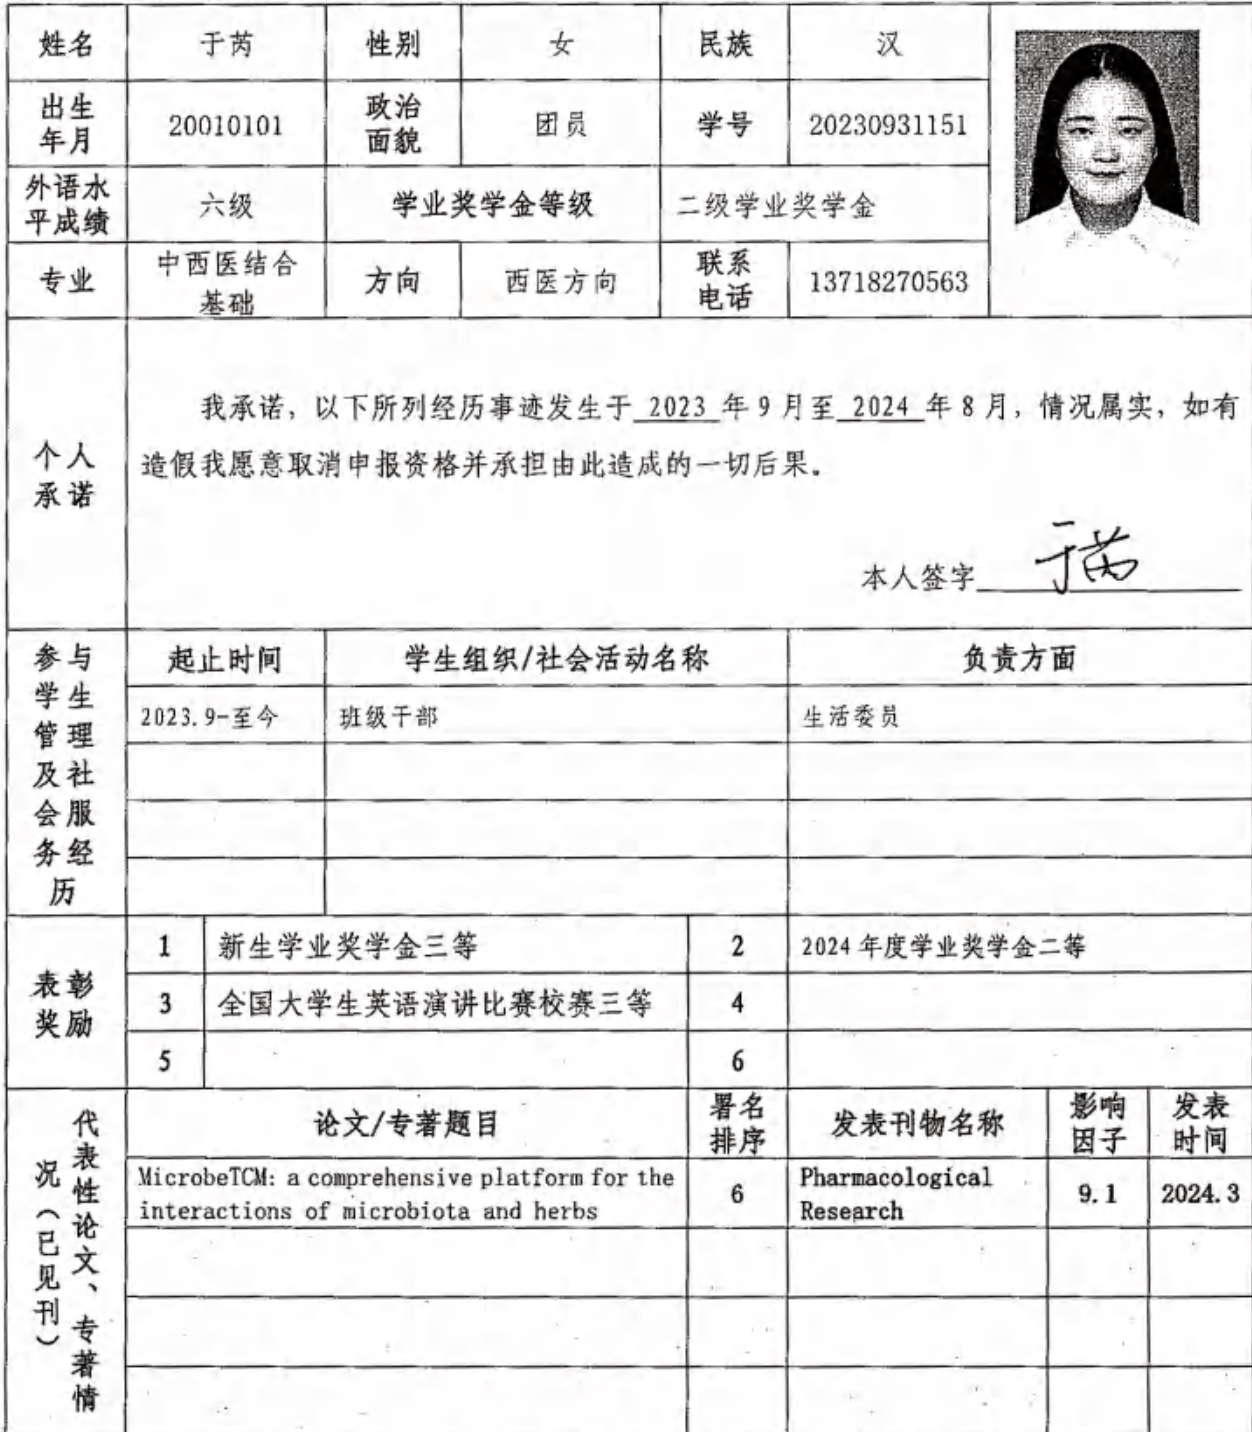 姓名 于芮 性别 女 民族 汉
出生年月 20010101 政治面貌 团员 学号 20230931151
外语水平成绩 六级 学业奖学金等级 二级学业奖学金
专业 中西医结合基础 方向 西医方向 联系电话 13718270563
个人承诺
我承诺，以下所列经历事迹发生于 2023 年 9 月至 2024 年 8 月，情况属实，如有
造假我愿意取消申报资格并承担由此造成的一切后果。
本人签字 于芮
参与学生管理及社会服务经历
起止时间 学生组织/社会活动名称 负责方面
2023.9-至今 班级干部 生活委员
表彰奖励
1 新生学业奖学金三等 2 2024 年度学业奖学金二等
3 全国大学生英语演讲比赛校赛三等 4
5 6
代表性论文、专著情况（已见刊）
论文/专著题目 署名排序 发表刊物名称 影响因子 发表时间
MicrobeTCM: a comprehensive platform for the
interactions of microbiota and herbs 6 Pharmacological Research 9.1 2024.3